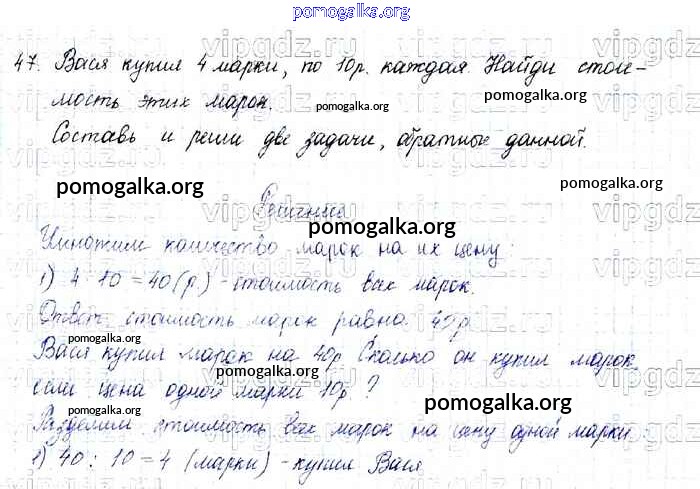 pomogalka.org
47. Вася купил 4 марки, по 10р. каждая. Найди стои-
мость этих марок.
pomogalka.org
pomogalka.org
Составь и реши две задачи, обратные данной.
pomogalka.org
pomogalka.org
Решение
pomogalka.org
Умножим количество марок на их цену:
1) 4 · 10 = 40 (р.) - стоимость всех марок.
pomogalka.org
Ответ: стоимость марок равна 40р.
pomogalka.org
Вася купил марок на 40р. Сколько он купил марок,
если цена одной марки 10р?
pomogalka.org
pomogalka.org
Разделим стоимость всех марок на цену одной марки
pomogalka.org
1) 40 : 10 = 4 (марки) - купил Вася